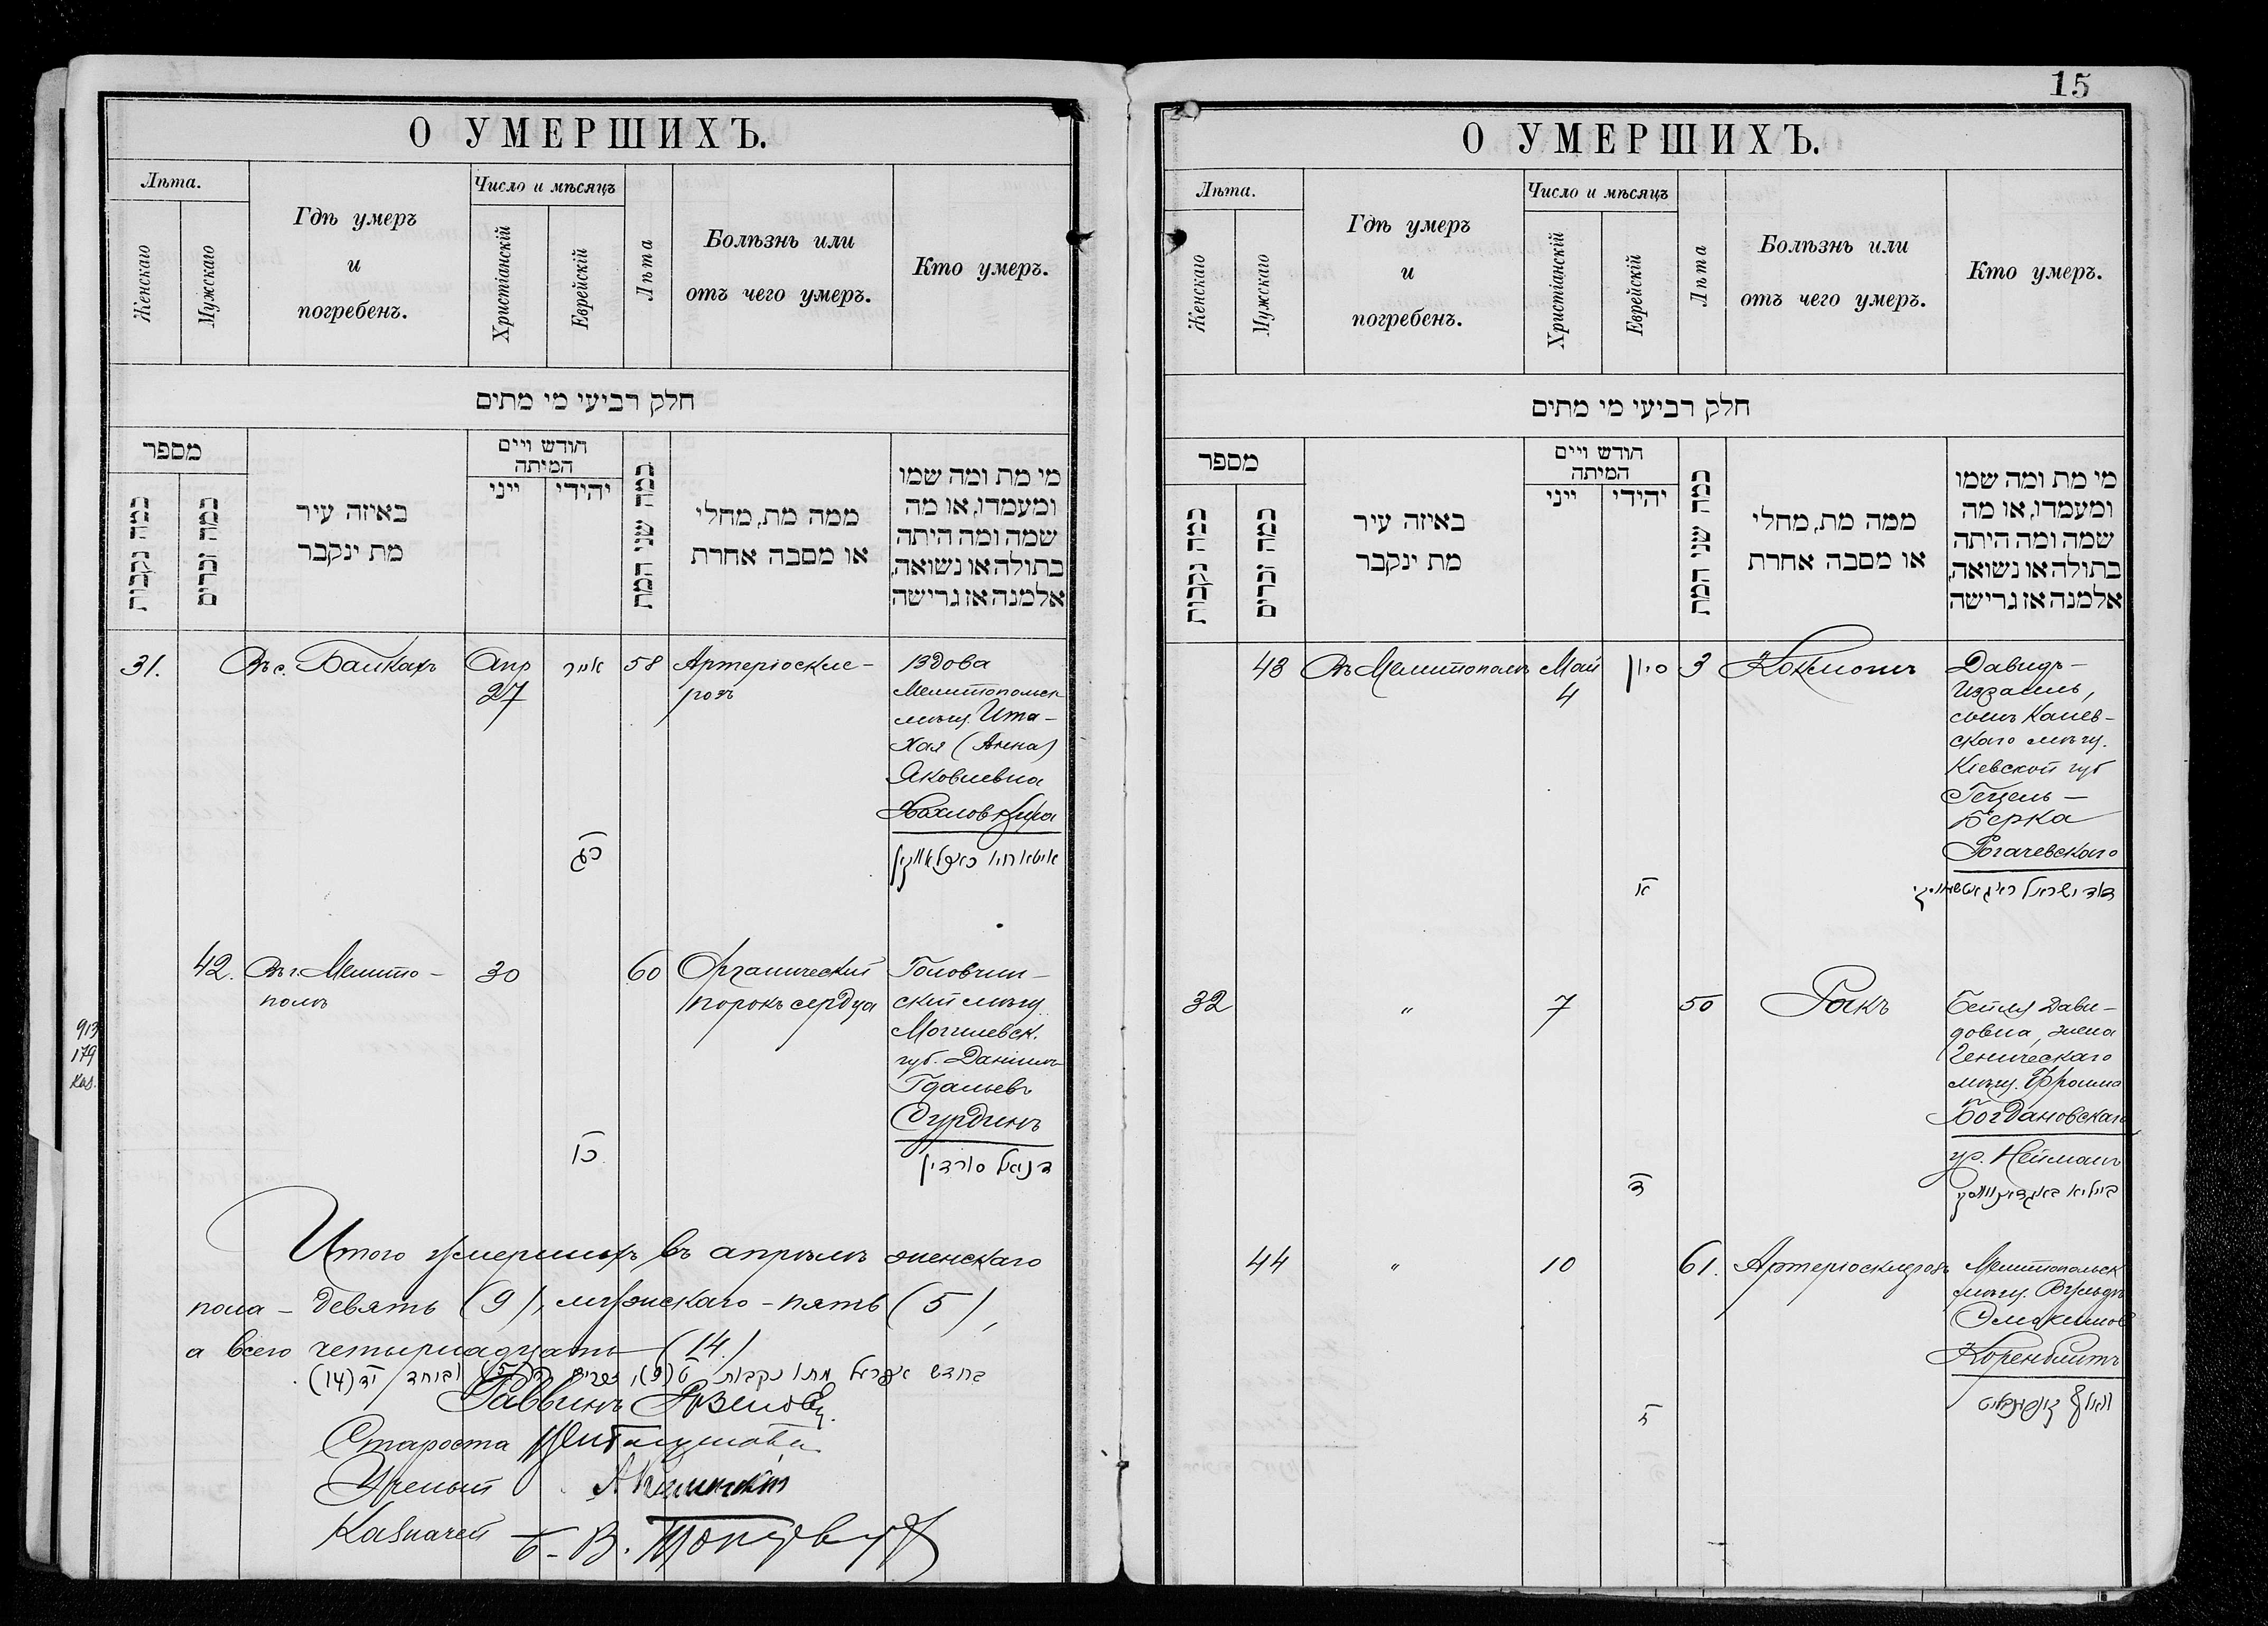 О УМЕРШИХЪ.
Лѣта.
Женскаго
Мужскаго
Гдѣ умеръ
и
погребенъ.
Число и мѣсяцъ
Христіанскій
Еврейскій
Лѣта
Болѣзнь или
отъ чего умеръ.
Кто умеръ.
חלק רביעי מי מתים
מספר
כמה נקבות
כמה זכרים
באיזה עיר
מת ינקבר
חודש ויים
המיתה
ייני
יהידי
כמה שני המת
ממה מת, מחלי
או מסבה אחרת
מי מת ומה שמו
ומעמדו, או מה
שמה ומה היתה
בתולה או נשואה,
אלמנה אז גרישה
31.
Въ с. Балкахъ
Апр
27
אייר
כג
58
Артеріоскле-
розъ
Вдова
Мелитопольск
мѣщ. Ита-
Хая (Анна)
Яковлевна
42.
Въ г. Мелито-
полѣ
30
כו
60
Органическій
порокъ сердца
Головчин-
скій мѣщ.
Могилевск.
губ. Даніилъ
Гдальевъ
Сурдинъ
דניאל סורדין
913
179
Итого умершихъ въ апрѣлѣ женскаго
пола - девять (9), мужскаго - пять (5),
а всего четырнадцать (14.)
בחדש אפריל מתו נקבות ט (9), זכרים ה (5) וביחד יד (14)
Раввинъ
Староста
Ученый
Казначей
15
О УМЕРШИХЪ.
Лѣта.
Женскаго
Мужскаго
Гдѣ умеръ
и
погребенъ.
Число и мѣсяцъ
Христіанскій
Еврейскій
Лѣта
Болѣзнь или
отъ чего умеръ.
Кто умеръ.
חלק רביעי מי מתים
מספר
כמה נקבות
כמה זכרים
באיזה עיר
מת ינקבר
חודש ויים
המיתה
ייני
יהידי
כמה שני המת
ממה מת, מחלי
או מסבה אחרת
מי מת ומה שמו
ומעמדו, או מה
שמה ומה היתה
בתולה או נשואה,
אלמנה אז גרישה
43
Въ Мелитополѣ
Май
4
סיון
א
3
Коклюшъ
Давидъ-
Израиль,
сынъ Канев-
скаго мѣщ.
Кіевской губ
Гецель-
Берка
Рогачевскаго
דוד ישראל
32
"
7
ד
50
Ракъ
Бейля Дави-
довна, жена
Геническаго
мѣщ. Фроима
Богдановскаго
ур. Нейманъ
ביילא באגדאנאווסקי
44
"
10
ז
61.
Артеріосклерозъ
Мелитопольск
мѣщ. Вульфъ
Коренблитъ